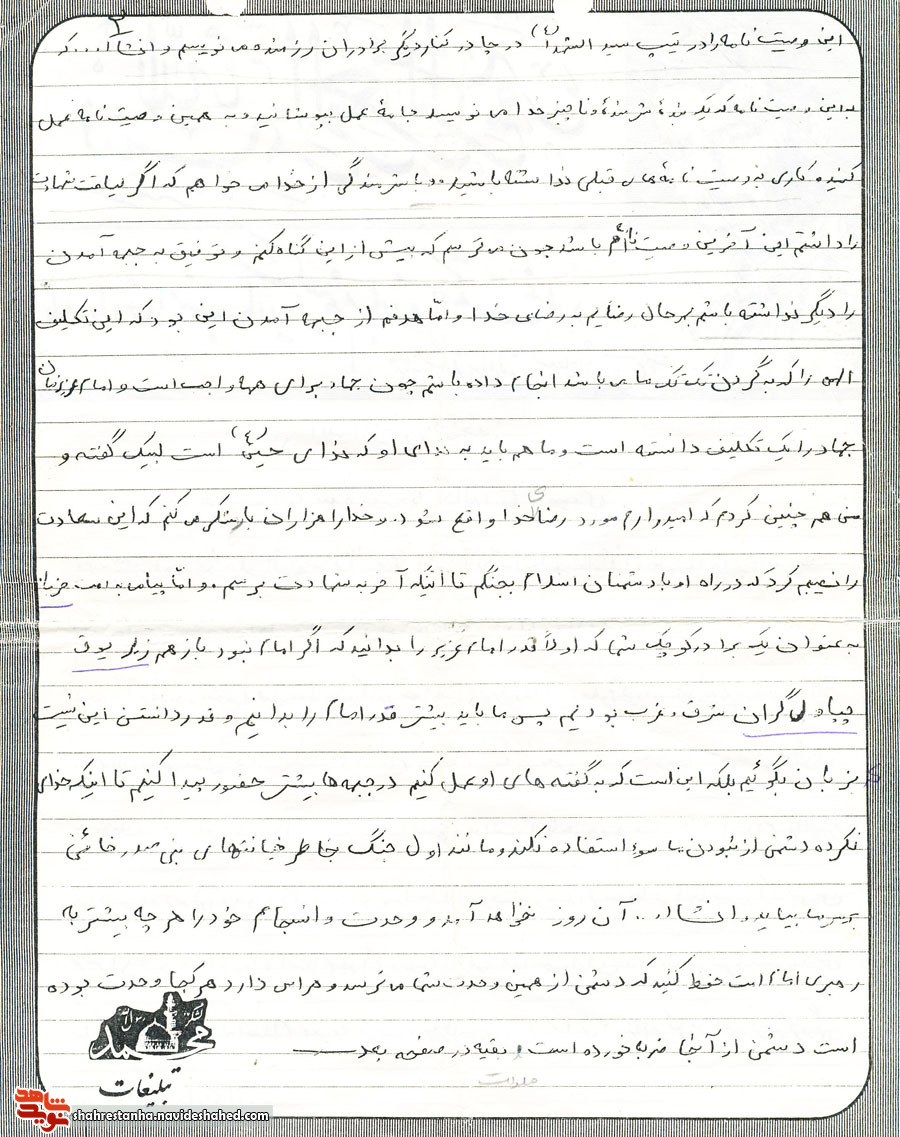 ۲
این وصیت نامه را در تیپ سید الشهداء (ع) در چادر کنار دیگر برادران رزمنده می نویسم و انشاا... که
به این وصیت نامه که یک بندهٔ شرمندهٔ و ناچیز خدا می نویسد جامهٔ عمل بپوشانید و به همین وصیت نامه عمل
کنید و کاری به وصیت نامه های قبلی نداشته باشید .. و با شرمندگی از خدا می خواهم که اگر لیاقت شهادت
را داشتم این آخرین وصیت نامه ام باشد چون می ترسم که بیش از این گناه کنم و توفیق به جبهه آمدن
را دیگر نداشته باشم بهرحال رضایم به رضای خدا و امّا هدفم از جبهه آمدن این بود که این تکلیف
الهی را که به گردن تک تک ما می باشد انجام داده باشم چون جهاد برای همه واجب است و امام عزیزمان
جهاد را یک تکلیف دانسته است و ما هم باید به ندای او که ندای حسین (ع) است لبیک گفته و
من هم چنین کردم که امیدوارم مورد رضای خدا واقع شود . و خدا را هزاران بار شکر می کنم که این سعادت
را نصیبم کرد که در راه او با دشمنان اسلام بجنگم تا اینکه آخر به شهادت برسم . و امّا پیامی به امت حزب ا...
به عنوان یک برادر کوچک شما که اولاً قدر امام عزیز را بدانید که اگر امام نبود باز هم زیر یوق
چپاول گران شرق و غرب بودیم پس ما باید بیشتر قدر امام را بدانیم و قدر دانستن این نیست
بزبان بگوئیم بلکه این است که به گفته های او عمل کنیم در جبهه ها بیشتر حضور پیدا کنیم تا اینکه خدای
نکرده دشمن از نبودن ما سوء استفاده نکند و مانند اول جنگ بخاطر خیانتهای بنی صدر خائن
بر سر ما بیاید و انشاا... آن روز نخواهد آمد و وحدت و انسجام خود را هر چه بیشتر به
رهبری امام امت حفظ کنید که دشمن از همین وحدت شما می ترسد و هراس دارد هر کجا وحدت بوده
است دشمن از آنجا ضربه خورده است . بقیه در صفحه بعد
محمد
رسول الله
تبلیغات
نوید شاهد
shahrestanha.navideshahed.com